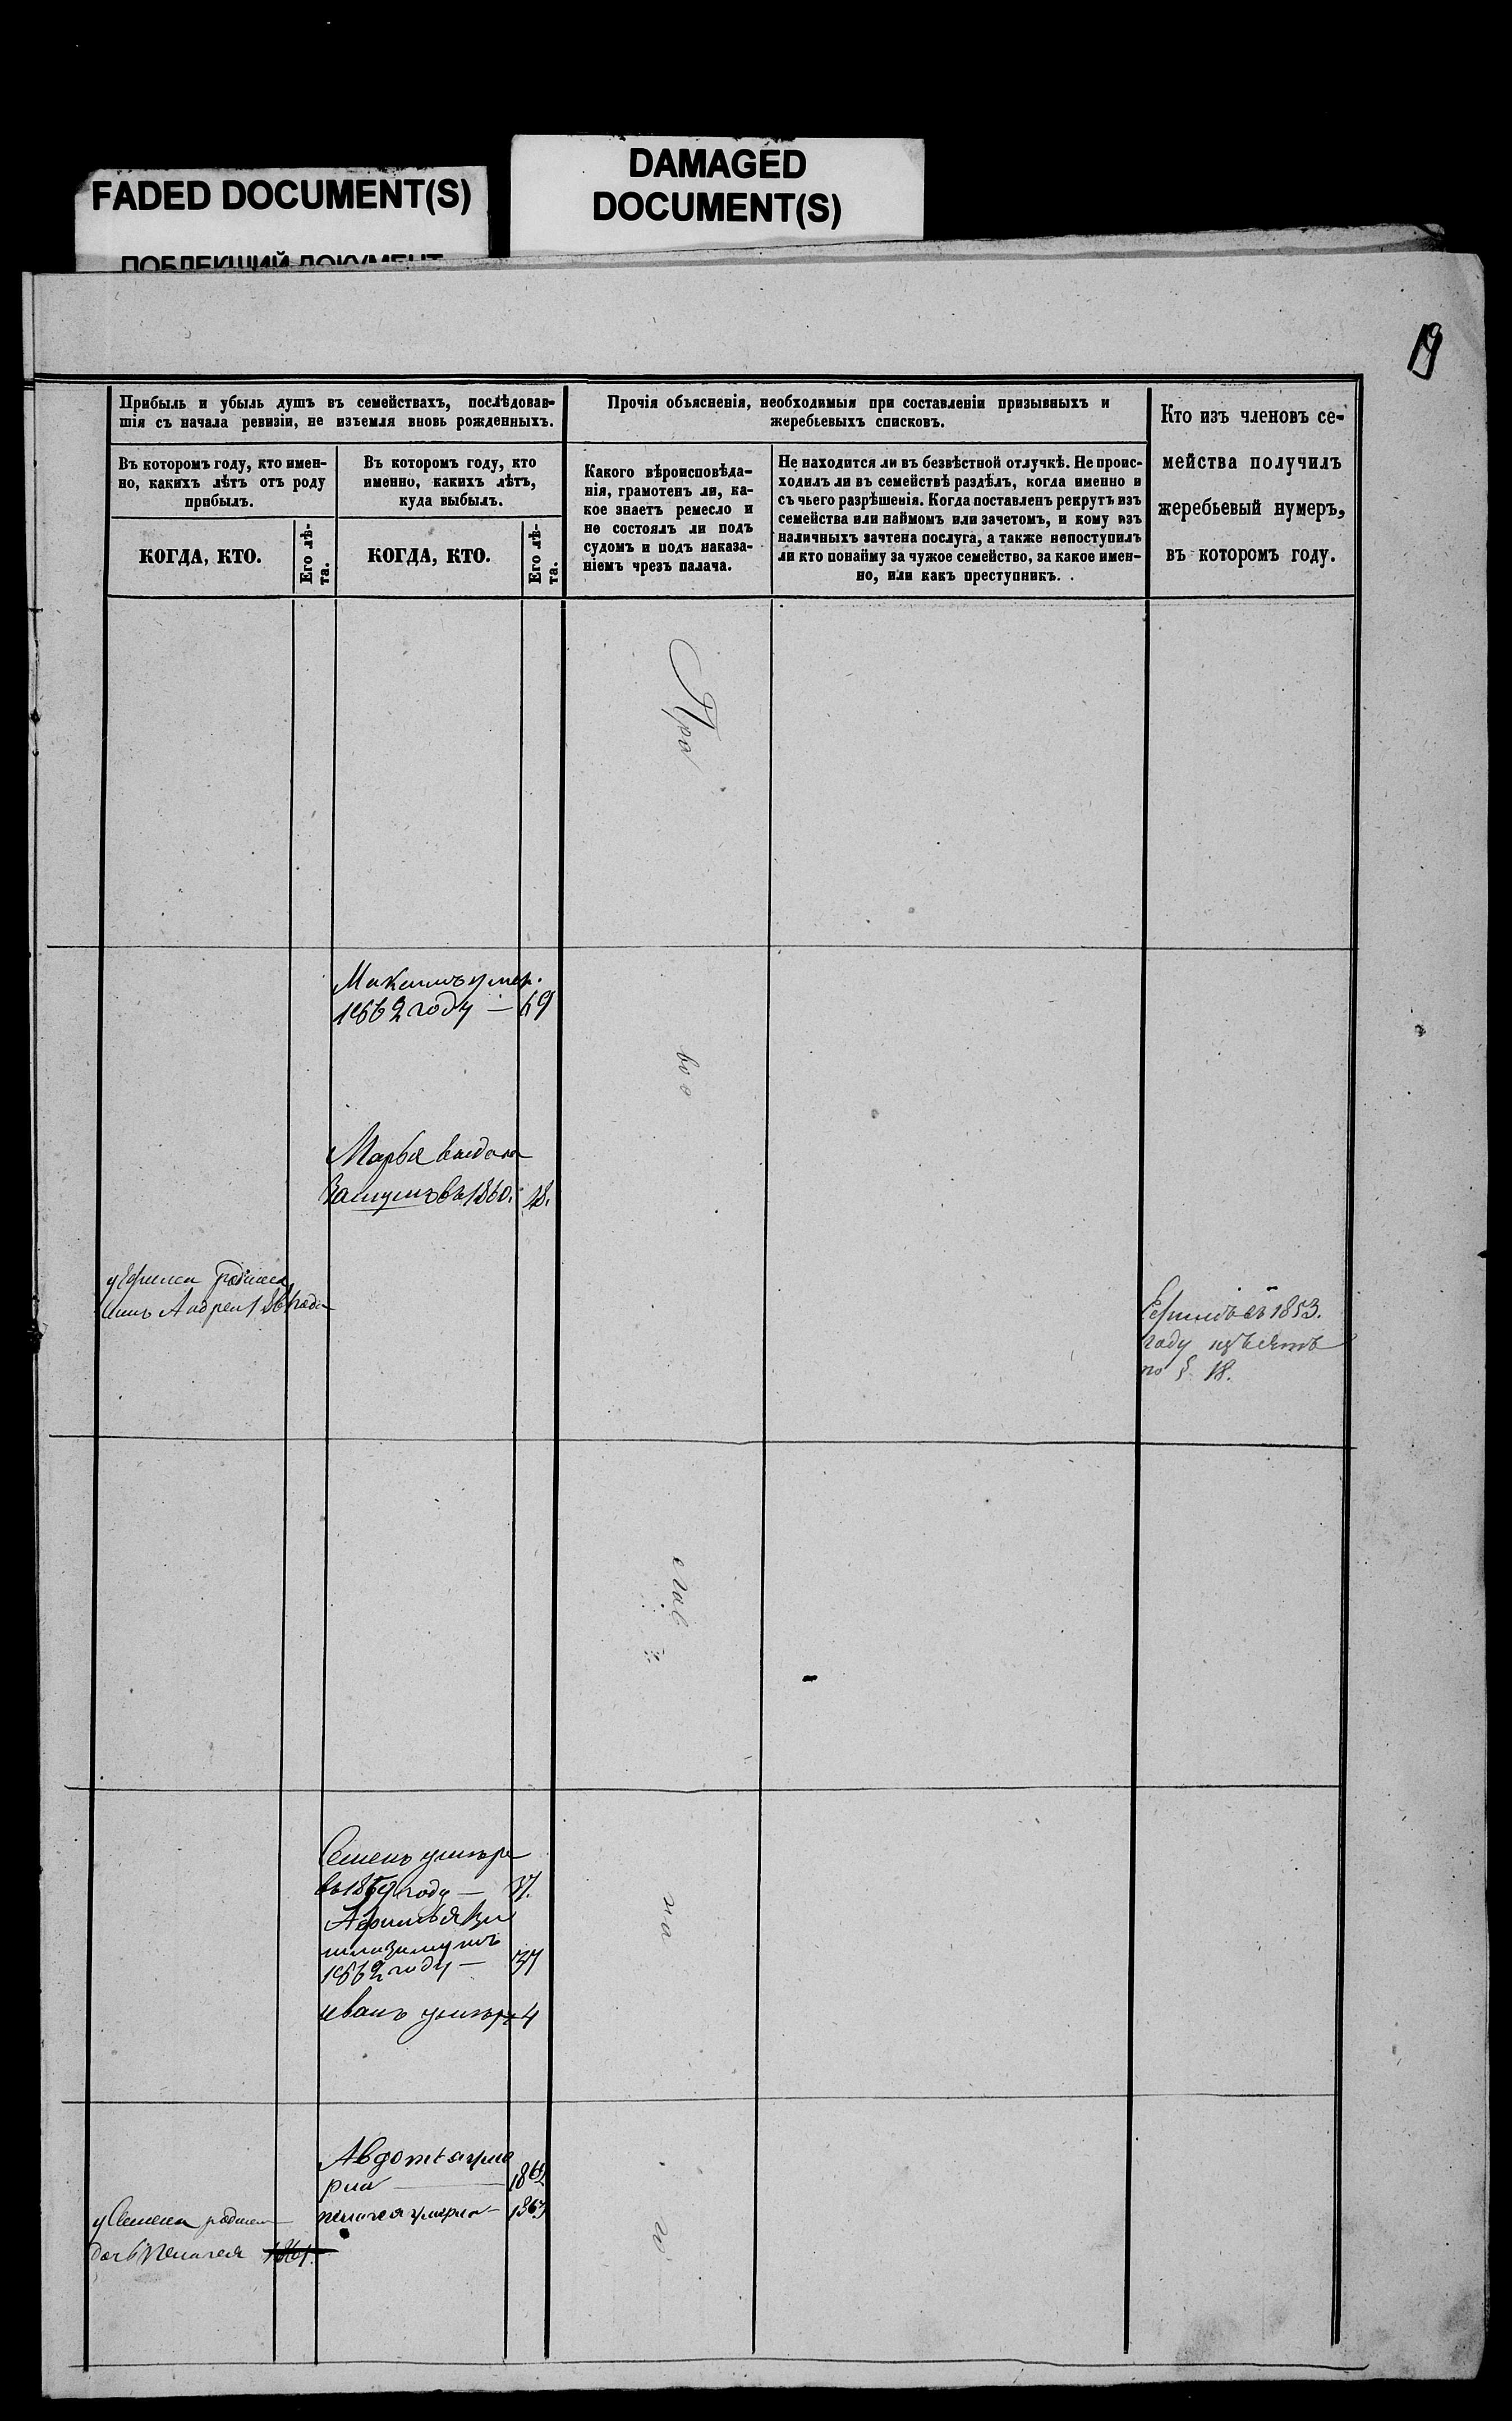 FADED DOCUMENT(S)
ПОБЛЕКШИЙ ДОКУМЕНТ
DAMAGED
DOCUMENT(S)
19
Прибыль и убыль душъ въ семействахъ, послѣдовав-
шія съ начала ревизіи, не изъемля вновь рожденныхъ.
Въ которомъ году, кто имен-
но, какихъ лѣтъ отъ роду
прибылъ.
КОГДА, КТО.
Его лѣ-
та.
Въ которомъ году, кто
именно, какихъ лѣтъ,
куда выбылъ.
КОГДА, КТО.
Его лѣ-
та.
Прочія объясненія, необходимыя при составленіи призывныхъ и
жеребьевыхъ списковъ.
Какого вѣроисповѣда-
нія, грамотенъ ли, ка-
кое знаетъ ремесло и
не состоялъ ли подъ
судомъ и подъ наказа-
ніемъ чрезъ палача.
Не находится ли въ безвѣстной отлучкѣ. Не проис-
ходилъ ли въ семействѣ раздѣлъ, когда именно и
съ чьего разрѣшенія. Когда поставленъ рекрутъ изъ
семейства или наймомъ или зачетомъ, и кому изъ
наличныхъ зачтена послуга, а также непоступилъ
ли кто понайму за чужое семейство, за какое имен-
но, или какъ преступникъ.
Кто изъ членовъ се-
мейства получилъ
жеребьевый нумеръ,
въ которомъ году.
Пра
Максимъ умер.
1862 году — 69
во
Марья выдана
Замужъ въ 1860. 18.
у Ефима родился
сынъ Андрей 1861 года
Ефимъ въ 1853.
году изъятъ
по § 18.
слав
Семенъ умѣръ
въ 1859 году — 37.
Афимья
замужъ
1862 году — 37
иванъ умѣръ 4
на
Авдотья уме
рла — 1862
пелагея умерла — 1863
у Семена родилась
дочь Пелагея 1861
го